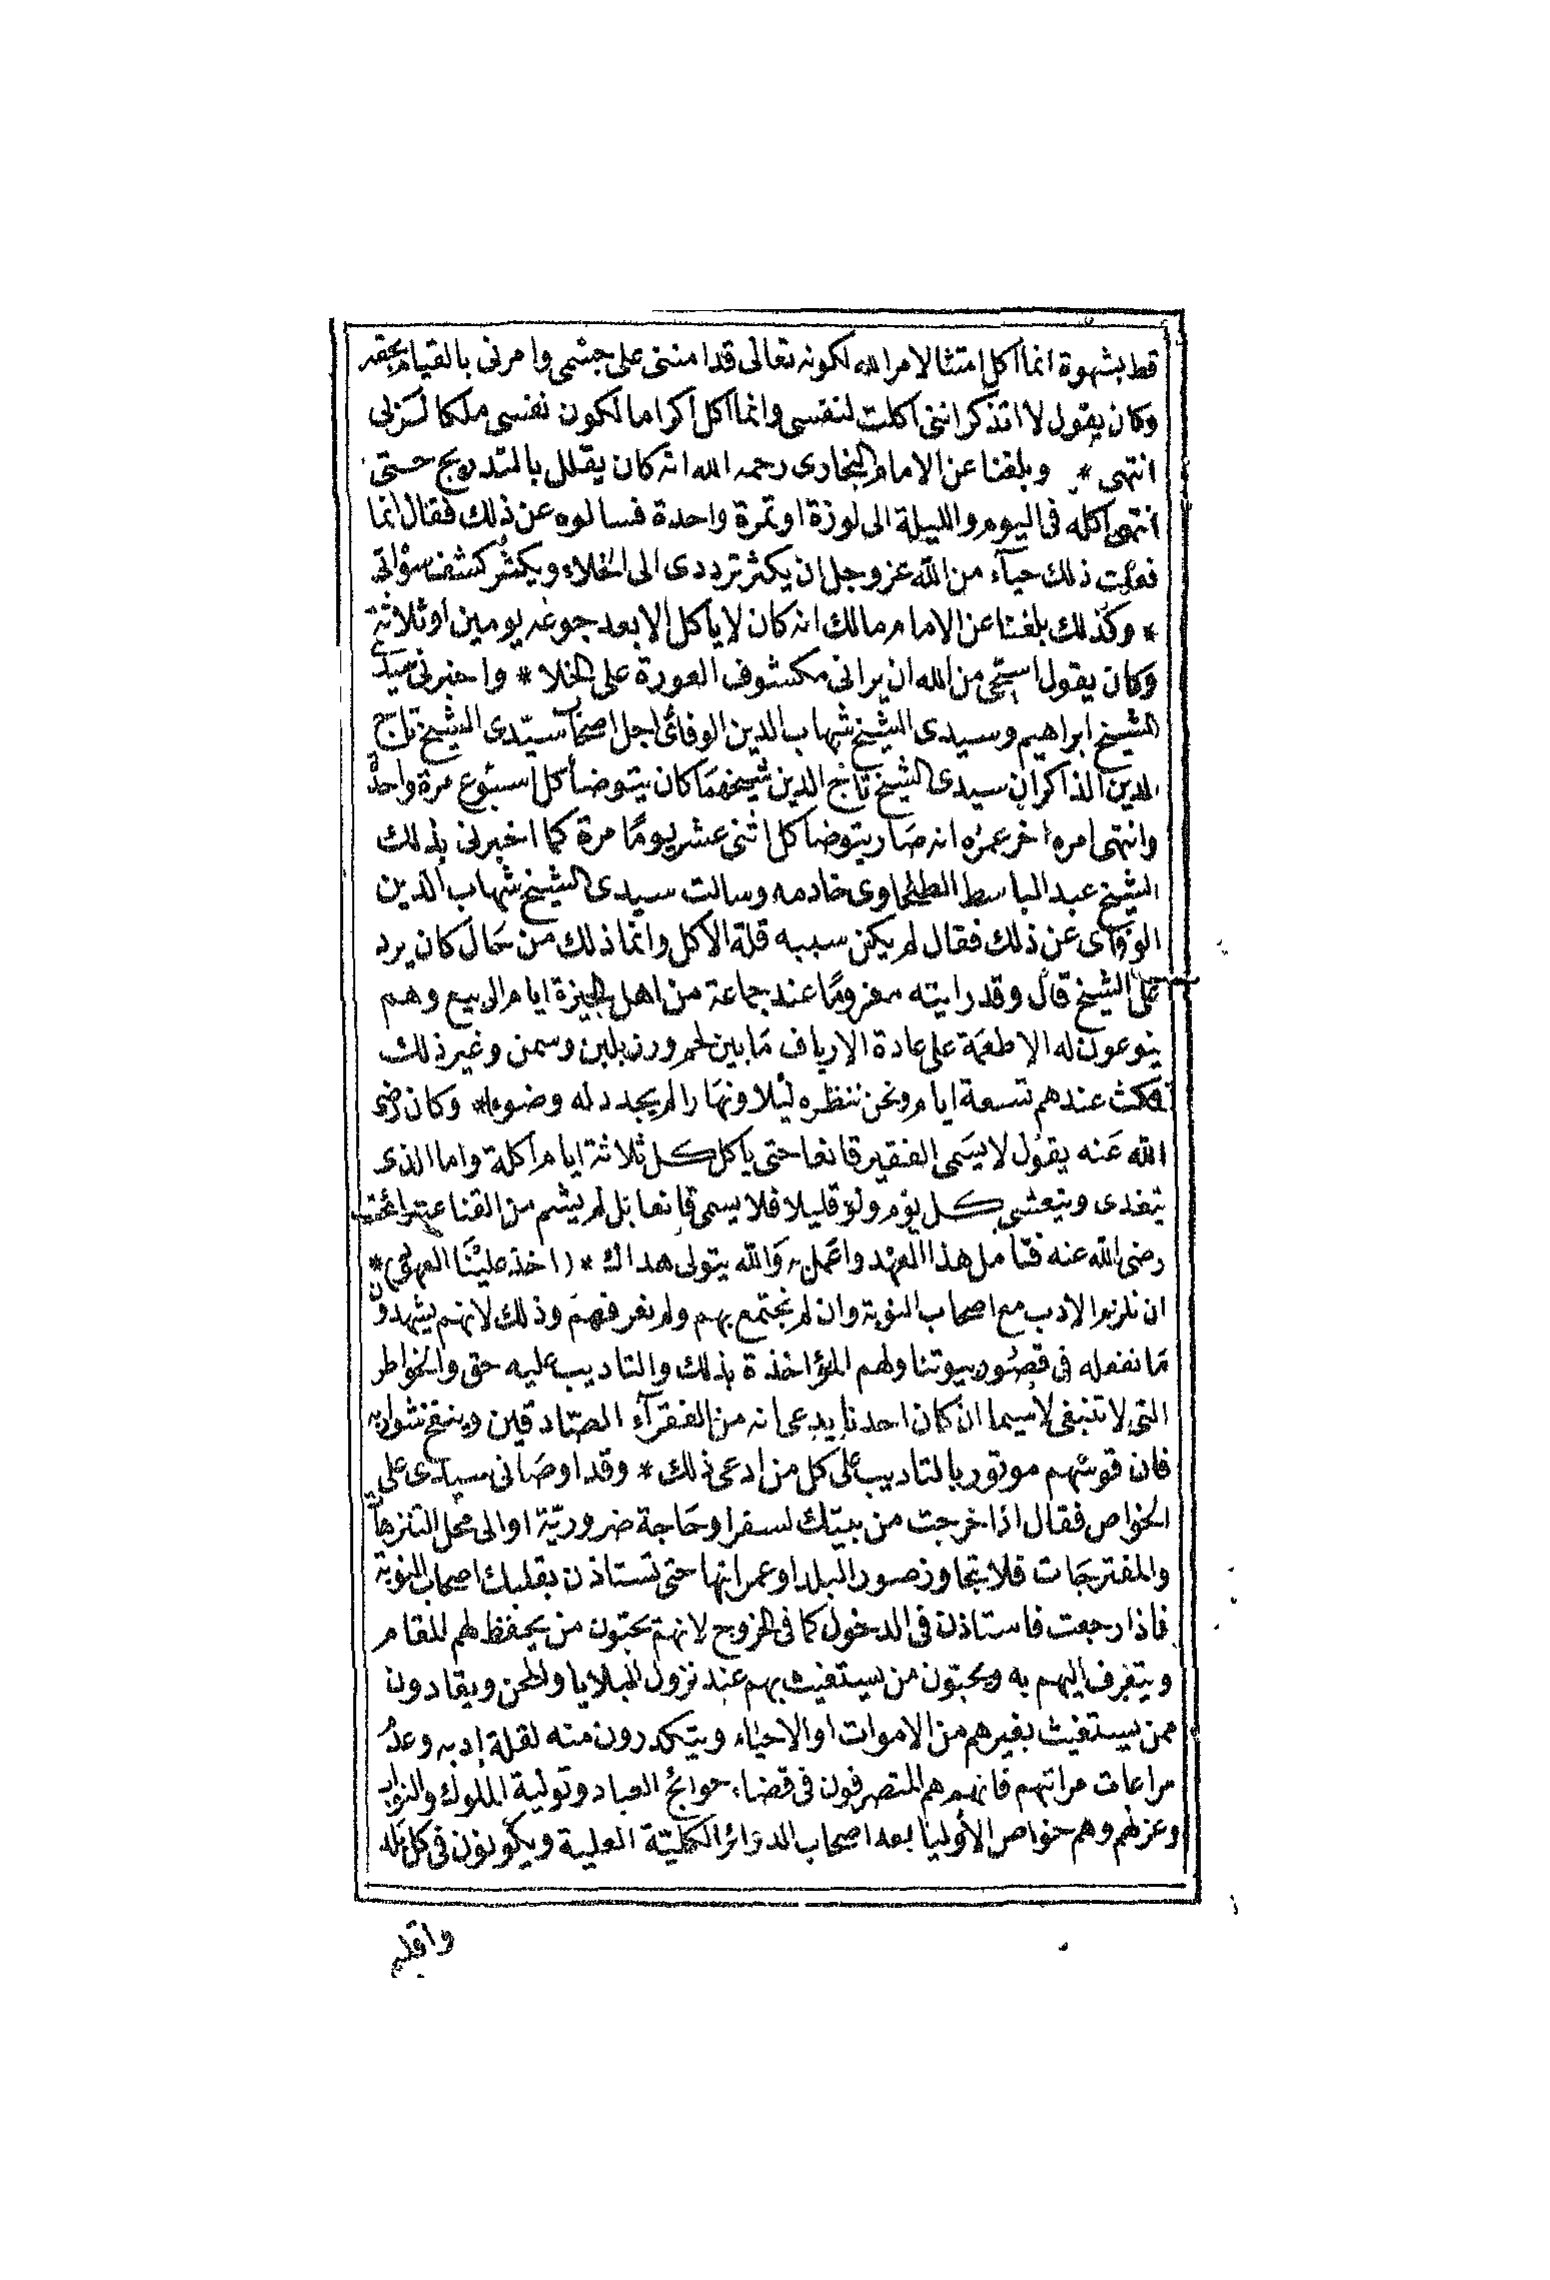 قط بشهوة انما اكل امتثالا لامر الله لكونه تعالى قد امننى على جسمى وامرنى بالقيام بحقه
وكان يقول لا اتذكر اننى اكلت لنفسى وانما اكل اكراما لكون نفسى ملكا لربى
انتهى * وبلغنا عن الامام البخارى رحمه الله انه كان يقلل بالتدريج حتى
انتهى اكله فى اليوم والليلة الى لوزة او تمرة واحدة فسالوه عن ذلك فقال انما
فعلت ذلك حيآء من الله عز وجل ان يكثر ترددى الى الخلاء ويكثر كشف سؤاتى
* وكذلك بلغنا عن الامام مالك انه كان لا ياكل الا بعد جوعه يومين او ثلاثة
وكان يقول استحى من الله ان يرانى مكشوف العورة على الخلا * واخبرنى سيدى
الشيخ ابراهيم وسيدى الشيخ شهاب الدين الوفائى اجل اصحاب سيّدى الشيخ تاج
الدين الذاكر ان سيدى الشيخ تاج الدين شيخهما كان يتوضأ كل اسبوع مرة واحدة
وانتهى امره اخر عمره انه صار يتوضا كل اثنى عشر يومًا مرة كما اخبرنى بذلك
الشيخ عبد الباسط الطحاوى خادمه وسالت سيدى الشيخ شهاب الدين
الوفاى عن ذلك فقال لم يكن سببه قلة الاكل وانما ذلك من حال كان يرد
على الشيخ قال وقد رايته معزومًا عند جماعة من اهل الجيزة ايام الربيع وهم
ينوعون له الاطعمة على عادة الارياف ما بين لحم ورز بلبن وسمن وغير ذلك
فمكث عندهم تسعة ايام ونحن ننظره ليلا ونهارا لم يجدد له وضوءا * وكان رضى
الله عنه يقول لا يسمى الفقير قانعا حتى ياكل كل ثلاثة ايام اكلة واما الذى
يتغدى ويتعشى كل يوم ولو قليلا فلا يسمى قانعا بل لم يشم من القناعة رائحة
رضى الله عنه فتامل هذا العهد واعمل به والله يتولى هداك * (اخذ علينا العهود) *
ان نلزم الادب مع اصحاب النوبة وان لم نجتمع بهم ولم نعرفهم وذلك لانهم يشهدون
ما نفعله فى قصور بيوتنا ولهم المؤاخذة بذلك والتاديب عليه حق والخواطر
التى لا تنبغى لا سيما ان كان احدنا يدعى انه من الفقرآء الصّادقين وينفخ نشوانه
فان قوسهم موتور بالتاديب على كل من ادعى ذلك * وقد اوصانى سيدى على
الخواص فقال اذا خرجت من بيتك لسفر او حاجة ضروريّة او الى محل التنزهات
والمفترجات فلا تتجاوز صور البلد او عمرانها حتى تستاذن بقلبك اصحاب النوبة
فاذا رجعت فاستاذن فى الدخول كما فى الخروج لانهم يحبّون من يحفظ لهم المقام
ويتعرف اليهم به ويحبّون من يستغيث بهم عند نزول البلايا والمحن ويقادون
ممن يستغيث بغيرهم من الاموات او الاحياء ويتكدرون منه لقلة ادبه وعدم
مراعات مراتبهم فانهم هم المتصرفون فى قضاء حوائج العباد وتولية الملوك والنواب
وعزلهم وهم خواص الأوليا بعد اصحاب الدوائر الكليّة العلية ويكونون فى كل بلد
واقليم